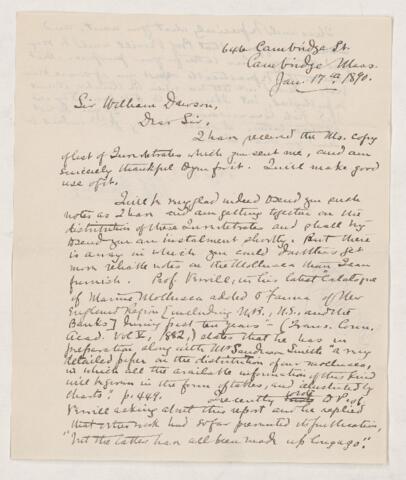 646 Cambridge St.
Cambridge Mass.
Jan. 17th 1890.
Sir William Dawson,
Dear Sir,
I have received the Ms. copy
of list of Invertebrates which you sent me, and am
sincerely thankful to you for it. I will make good
use of it.
I will be very glad indeed to send you such
notes as I have and am getting together on the
distribution of these Invertebrates and shall try
to send you an instalment shortly. But there
is a way in which you could get
more reliable notes on the Mollusca than I can
furnish. Prof. Verrill, in his latest "Catalogue
of Marine Mollusca added to Fauna of New
England Region [including N.B., N.S., and the
Banks] during past ten years" (Trans. Conn.
Acad. Vol V, 1882,) states that he has in
preparation along with Mr Sanderson Smith "a very
detailed paper on the distribution of our mollusca,
in which all the available information of this kind
will be given in the form of tables, and illustrated by
charts." p. 449. I recently wrote to Prof.
Verrill asking about this report and he replied
that other work had so far prevented its publication,
"but the tables have all been made up long ago."